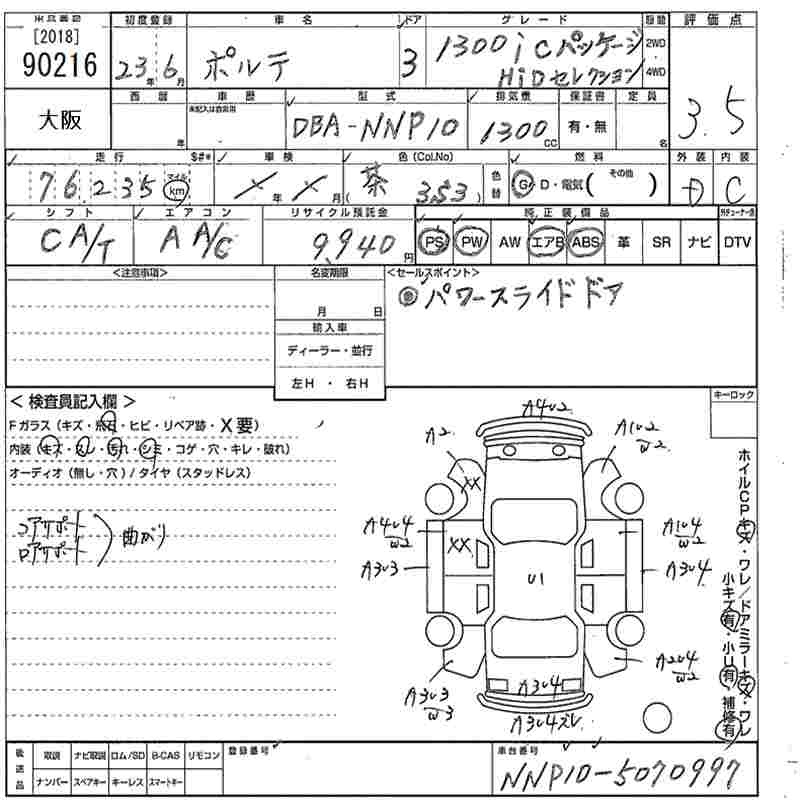 [2018]
90216
大阪
初度登録 車名 ドア グレード 駆動 評価点
23年 6月 ポルテ 3 1300 i Cパッケージ HiDセレクション 2WD 4WD
3.5
西暦 車歴 型式 排気量 保証書 定員
年 未記入は自家用 DBA-NNP10 1300 CC 有・無 名
走行 $#* 車検 色(Col.No) 色替 燃料 外装 内装
76,235 マイル km メ年メ月 茶 (353) G・D・電気( その他 ) D C
シフト エアコン リサイクル預託金 純正装備品
CA/T AA/C 9940円 PS PW AW エアB ABS 革 SR ナビ DTV
<注意事項> 名変期限 <セールスポイント>
月 日 パワースライドドア
輸入車
ディーラー・並行
左H・右H
<検査員記入欄> キーロック
Fガラス(キズ・飛石・ヒビ・リペア跡・X要)
内装(キズ・スレ・汚れ・シミ・コゲ・穴・キレ・破れ)
オーディオ(無し・穴)/タイヤ(スタッドレス)
コアサポート
ロアサポート 曲がり
A4U2
A2 A1U2 W2
XX
A4U4 W2 A1U4 W2
XX
A3U3 U1 A3U4
A3U3 W3 A3U4 A2U4 W2
A3U4ズレ
ホイルCPキズ・ワレ/ドアミラーキズ・ワレ
小キズ有・小U有・補修有
後送品 取説 ナビ取説 ロム/SD B-CAS リモコン 登録番号 車台番号
ナンバー スペアキー キーレス スマートキー NNP10-5070997